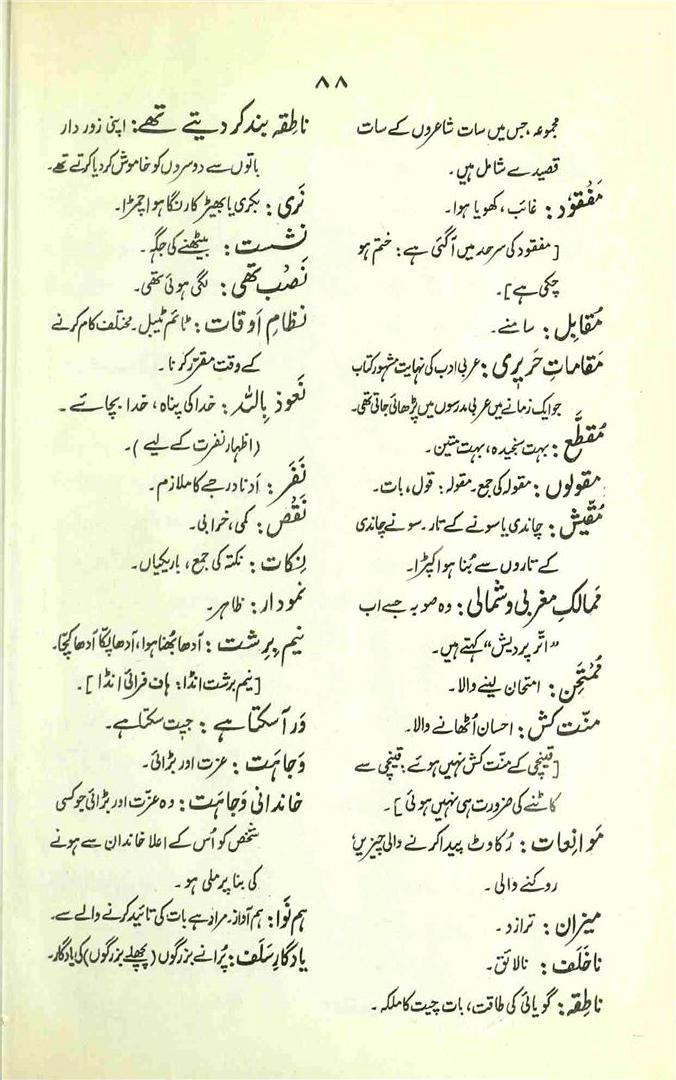 ۸۸
مجموعہ، جس میں سات شاعروں کے سات
قصیدے شامل ہیں۔
مَفْقُوْد: غائب، کھویا ہوا۔
[مفقود کی سرحد میں آگئی ہے: ختم ہو
چکی ہے]۔
مُقابِل: سامنے۔
مَقاماتِ حَرِیری: عربی ادب کی نہایت مشہور کتاب
جو ایک زمانے میں عربی مدرسوں میں پڑھائی جاتی تھی۔
مُقَطَّع: بہت سنجیدہ، بہت متین۔
مقولوں: مقولہ کی جمع۔ مقولہ: قول، بات۔
مُقَیّش: چاندی یا سونے کے تار۔ سونے چاندی
کے تاروں سے بُنا ہوا کپڑا۔
مَمالکِ مغربی و شمالی: وہ صوبہ جسے اب
“اتر پردیش” کہتے ہیں۔
مُمْتَحِن: امتحان لینے والا۔
منّت کش: احسان اُٹھانے والا۔
[قینچی کے منّت کش نہیں ہوئے: قینچی سے
کاٹنے کی ضرورت ہی نہیں ہوئی]۔
مَوانِعات: رُکاوٹ پیدا کرنے والی چیزیں،
روکنے والی۔
میزان: ترازد۔
ناخَلَف: نالائق۔
ناطِقہ: گویائی کی طاقت، بات چیت کا ملکہ۔
ناطِقہ بند کر دیتے تھے: اپنی زور دار
باتوں سے دوسروں کو خاموش کر دیا کرتے تھے۔
نَرِی: بکری یا بھیڑ کا رنگا ہوا چمڑا۔
نشست: بیٹھنے کی جگہ۔
نَصْب تھی: لگی ہوئی تھی۔
نظامِ اَوقات: ٹائم ٹیبل۔ مختلف کام کرنے
کے وقت مقرّر کرنا۔
نَعوذ بِاللہ: خدا کی پناہ، خدا بچائے۔
(اظہارِ نفرت کے لیے)۔
نَفَر: اَدنا درجے کا ملازم۔
نَقْص: کمی، خرابی۔
نِکات: نکتہ کی جمع، باریکیاں۔
نمودار: ظاہر۔
نیم بِرِشت: آدھا بُھنا ہوا، آدھا پکّا آدھا کچّا۔
[نیم برشت انڈا: ہاف فرائی انڈا]۔
وَر آسکتا ہے: جیت سکتا ہے۔
وَجاہَت: عزت اور بڑائی۔
خاندانی وَجاہَت: وہ عزّت اور بڑائی جو کسی
شخص کو اُس کے اعلا خاندان سے ہونے
کی بنا پر ملی ہو۔
ہم نَوا: ہم آواز۔ مراد ہے بات کی تائید کرنے والے سے۔
یادگارِ سَلَف: پُرانے بزرگوں (پچھلے بزرگوں) کی یادگار۔